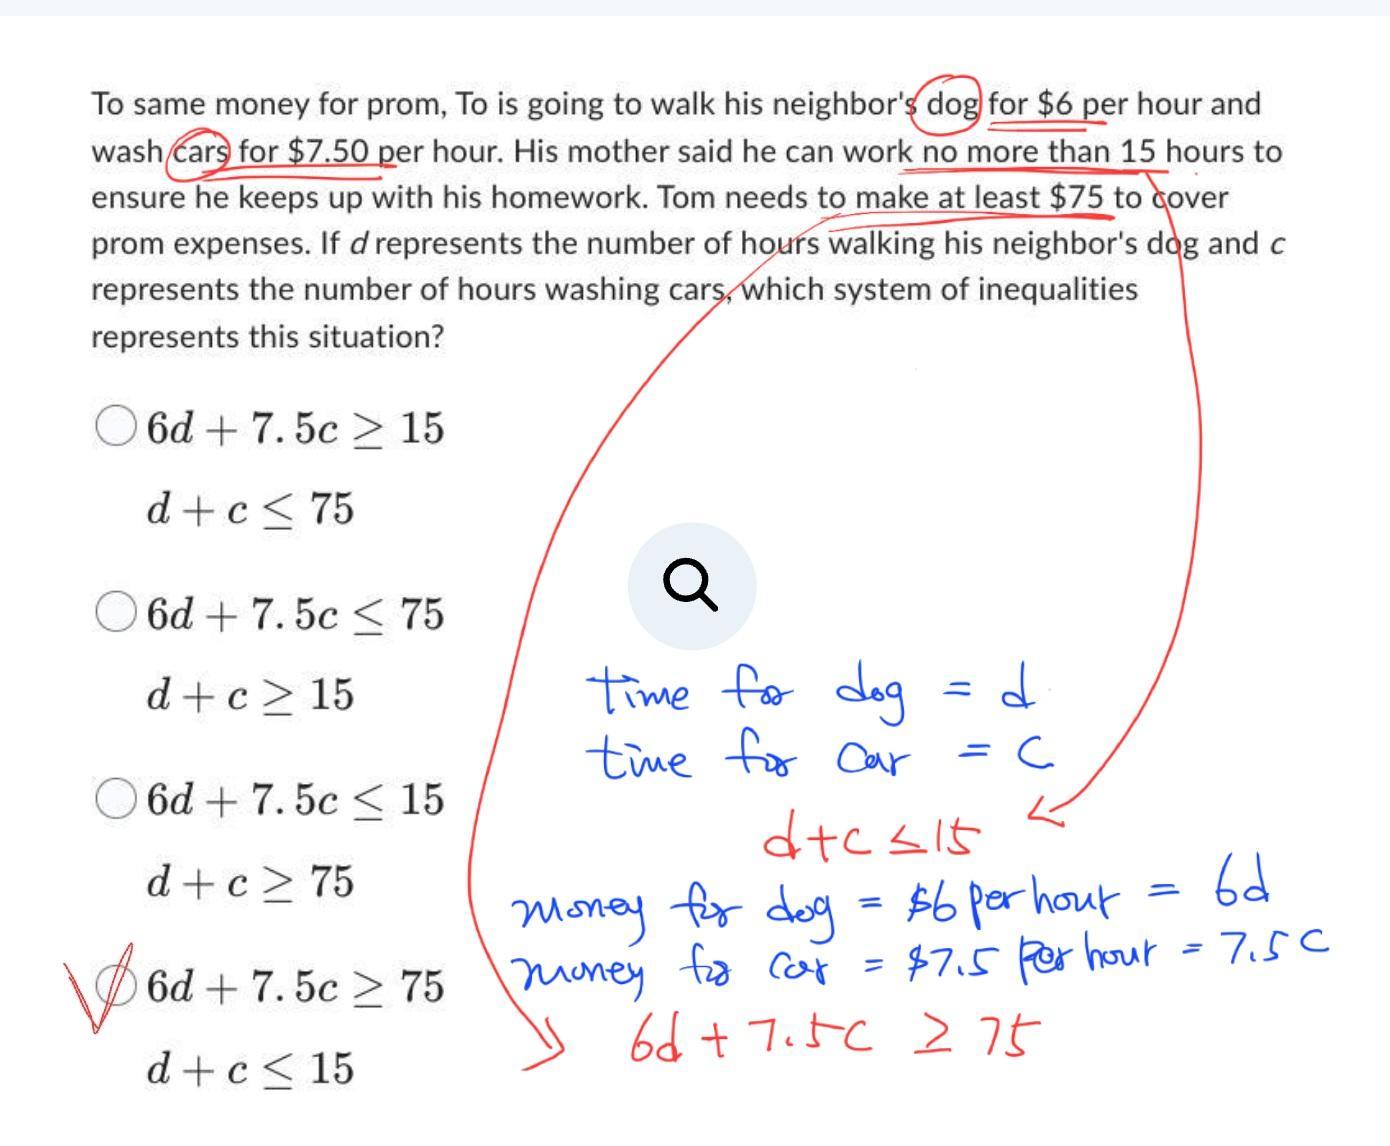 To same money for prom, To is going to walk his neighbor's dog for $6 per hour and
wash cars for $7.50 per hour. His mother said he can work no more than 15 hours to
ensure he keeps up with his homework. Tom needs to make at least $75 to cover
prom expenses. If d represents the number of hours walking his neighbor's dog and c
represents the number of hours washing cars, which system of inequalities
represents this situation?
6d + 7.5c ≥ 15
d + c ≤ 75
6d + 7.5c ≤ 75
d + c ≥ 15
6d + 7.5c ≤ 15
d + c ≥ 75
6d + 7.5c ≥ 75
d + c ≤ 15
time for dog = d
time for car = c
d+c ≤ 15
money for dog = $6 per hour = 6d
money for car = $7.5 per hour = 7.5c
6d + 7.5c ≥ 75